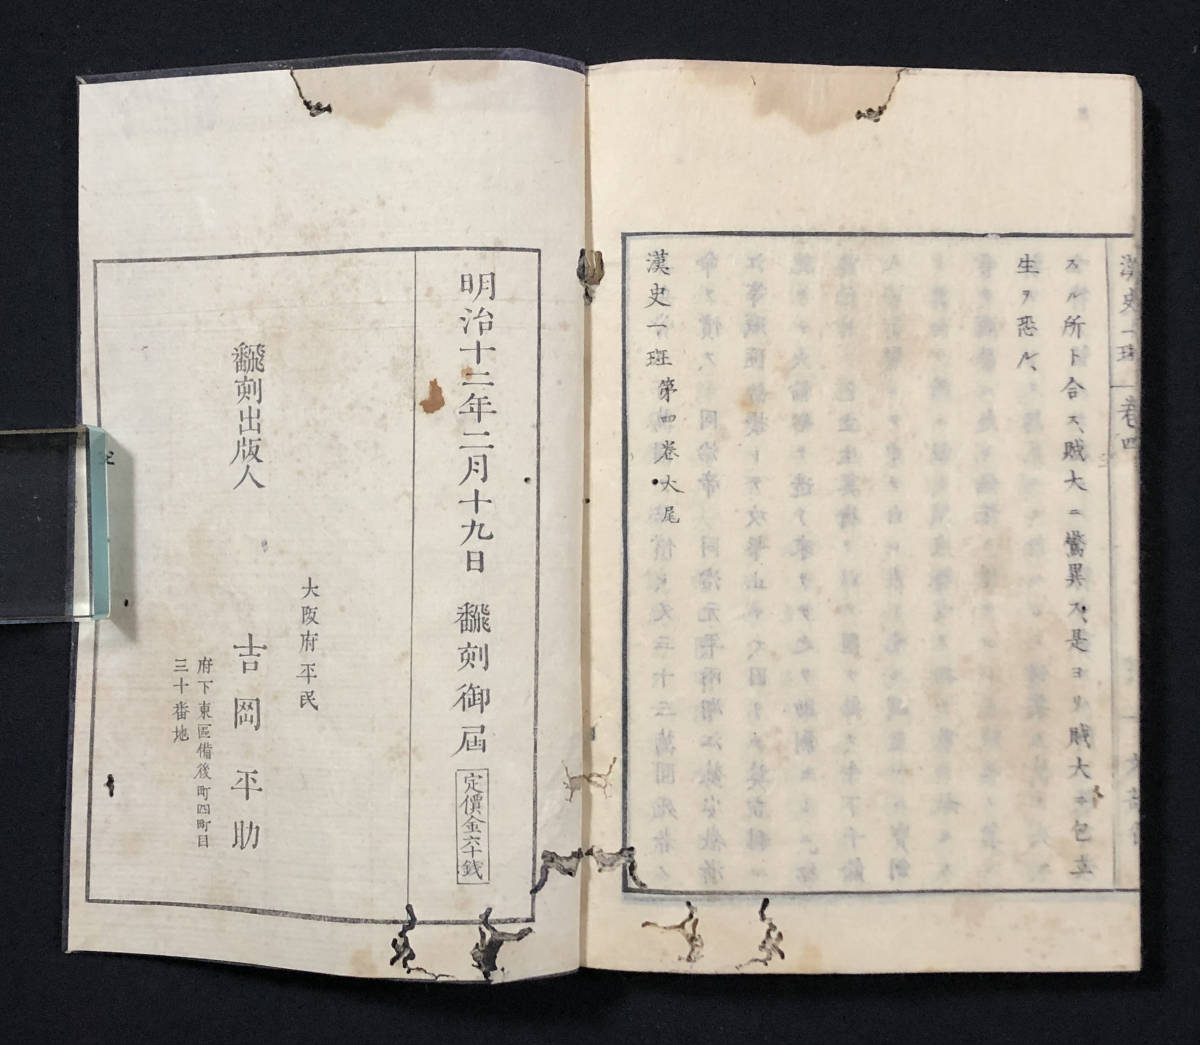 スル所ト合ス、賊大ニ驚異ス、是ヨリ賊大ニ包立
生ヲ恐ル、
漢史一班第四卷大尾
漢史一班 卷四
明治十二年二月十九日 飜刻御屆 定價金六十錢
大阪府平民
飜刻出版人 吉岡平助
府下東區備後町四町目
三十番地